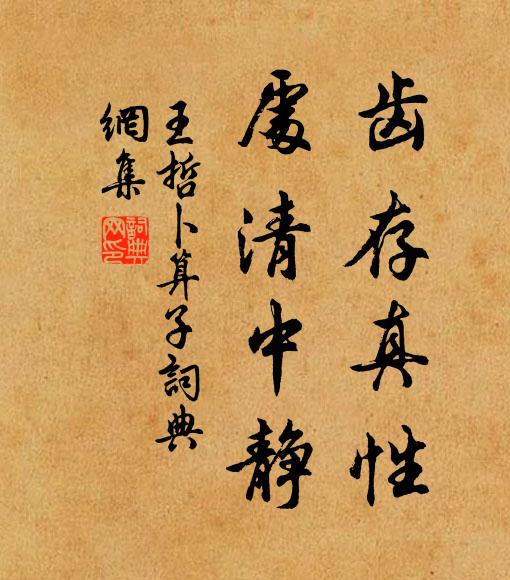 齿存真性
處清中静
王哲卜算子詞典
網集
詞典
網印